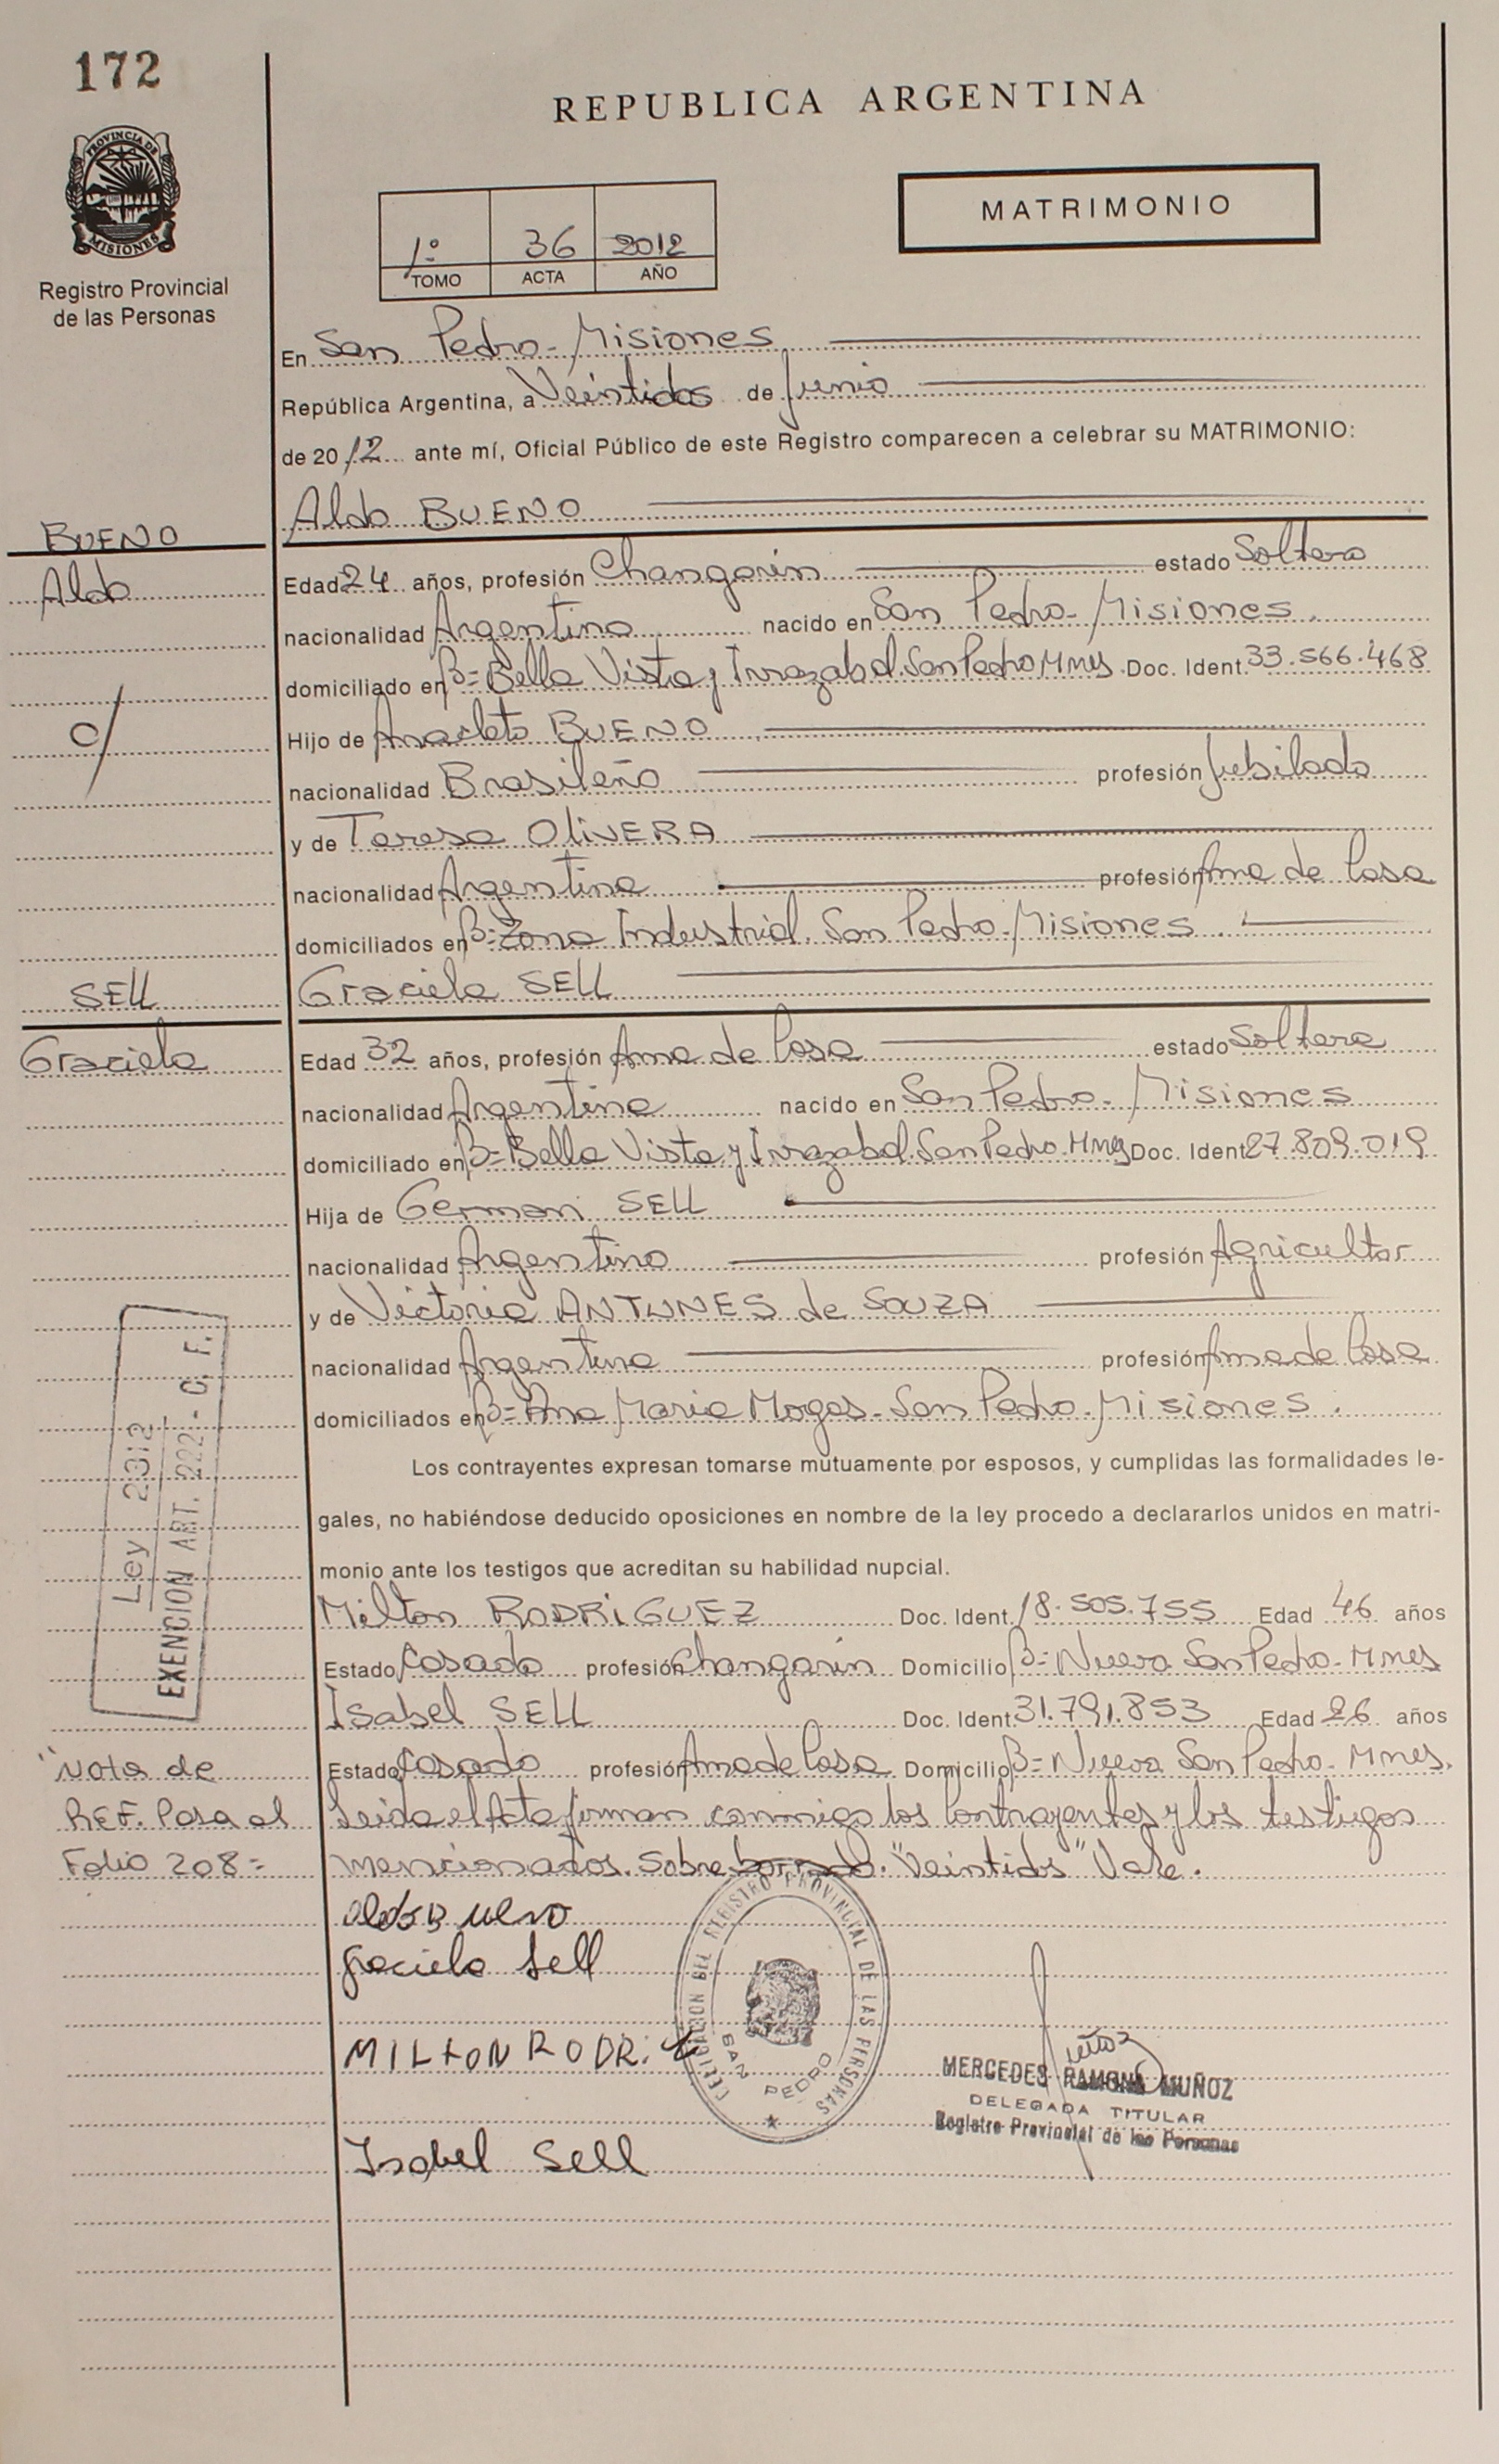 172
REPUBLICA ARGENTINA
PROVINCIA DE
MISIONES
Registro Provincial
de las Personas
1º 36 2012
TOMO ACTA AÑO
MATRIMONIO
En San Pedro - Misiones
República Argentina, a Veintidos de Junio
de 2012 ante mí, Oficial Público de este Registro comparecen a celebrar su MATRIMONIO:
BUENO
Aldo
c/
Aldo BUENO
Edad 24 años, profesión Changarin estado Soltero
nacionalidad Argentino nacido en San Pedro - Misiones.
domiciliado en Bº= Bella Vista y Irrazabal. San Pedro Mnes Doc. Ident. 33.566.468
Hijo de Anacleto BUENO
nacionalidad Brasileño profesión Jubilado
y de Teresa OLIVERA
nacionalidad Argentina profesión Ama de Casa
domiciliados en Bº= Zona Industrial. San Pedro - Misiones.
SELL
Graciela
Graciela SELL
Edad 32 años, profesión Ama de Casa estado Soltera
nacionalidad Argentina nacido en San Pedro - Misiones
domiciliado en Bº= Bella Vista y Irrazabal. San Pedro. Mnes Doc. Ident 27.809.019
Hija de German SELL
nacionalidad Argentino profesión Agricultor
y de Victoria ANTUNES de SOUZA
nacionalidad Argentina profesión Ama de Casa
domiciliados en Bº= Ana Maria Mogas - San Pedro - Misiones.
Los contrayentes expresan tomarse mutuamente por esposos, y cumplidas las formalidades le-
gales, no habiéndose deducido oposiciones en nombre de la ley procedo a declararlos unidos en matri-
monio ante los testigos que acreditan su habilidad nupcial.
Ley 2312
EXENCION ART. 222 - C. F.
Milton RODRIGUEZ Doc. Ident. 18.505.755 Edad 46 años
Estado Casado profesión Changarin Domicilio Bº= Nuevo San Pedro - Mnes
Isabel SELL Doc. Ident. 31.791.853 Edad 26 años
Estado Casado profesión Ama de Casa Domicilio Bº= Nuevo San Pedro - Mnes.
Leida el Acta firman conmigo los Contrayentes y los testigos
mencionados. Sobre borrado. "Veintidos" Vale.
"Nota de
REF. Pasa al
Folio 208=
Aldo Bueno
Graciela Sell
MILTON RODRI
Isabel Sell
DELEGACION DEL REGISTRO PROVINCIAL DE LAS PERSONAS
SAN PEDRO
MERCEDES RAMONA MUÑOZ
DELEGADA TITULAR
Registro Provincial de las Personas